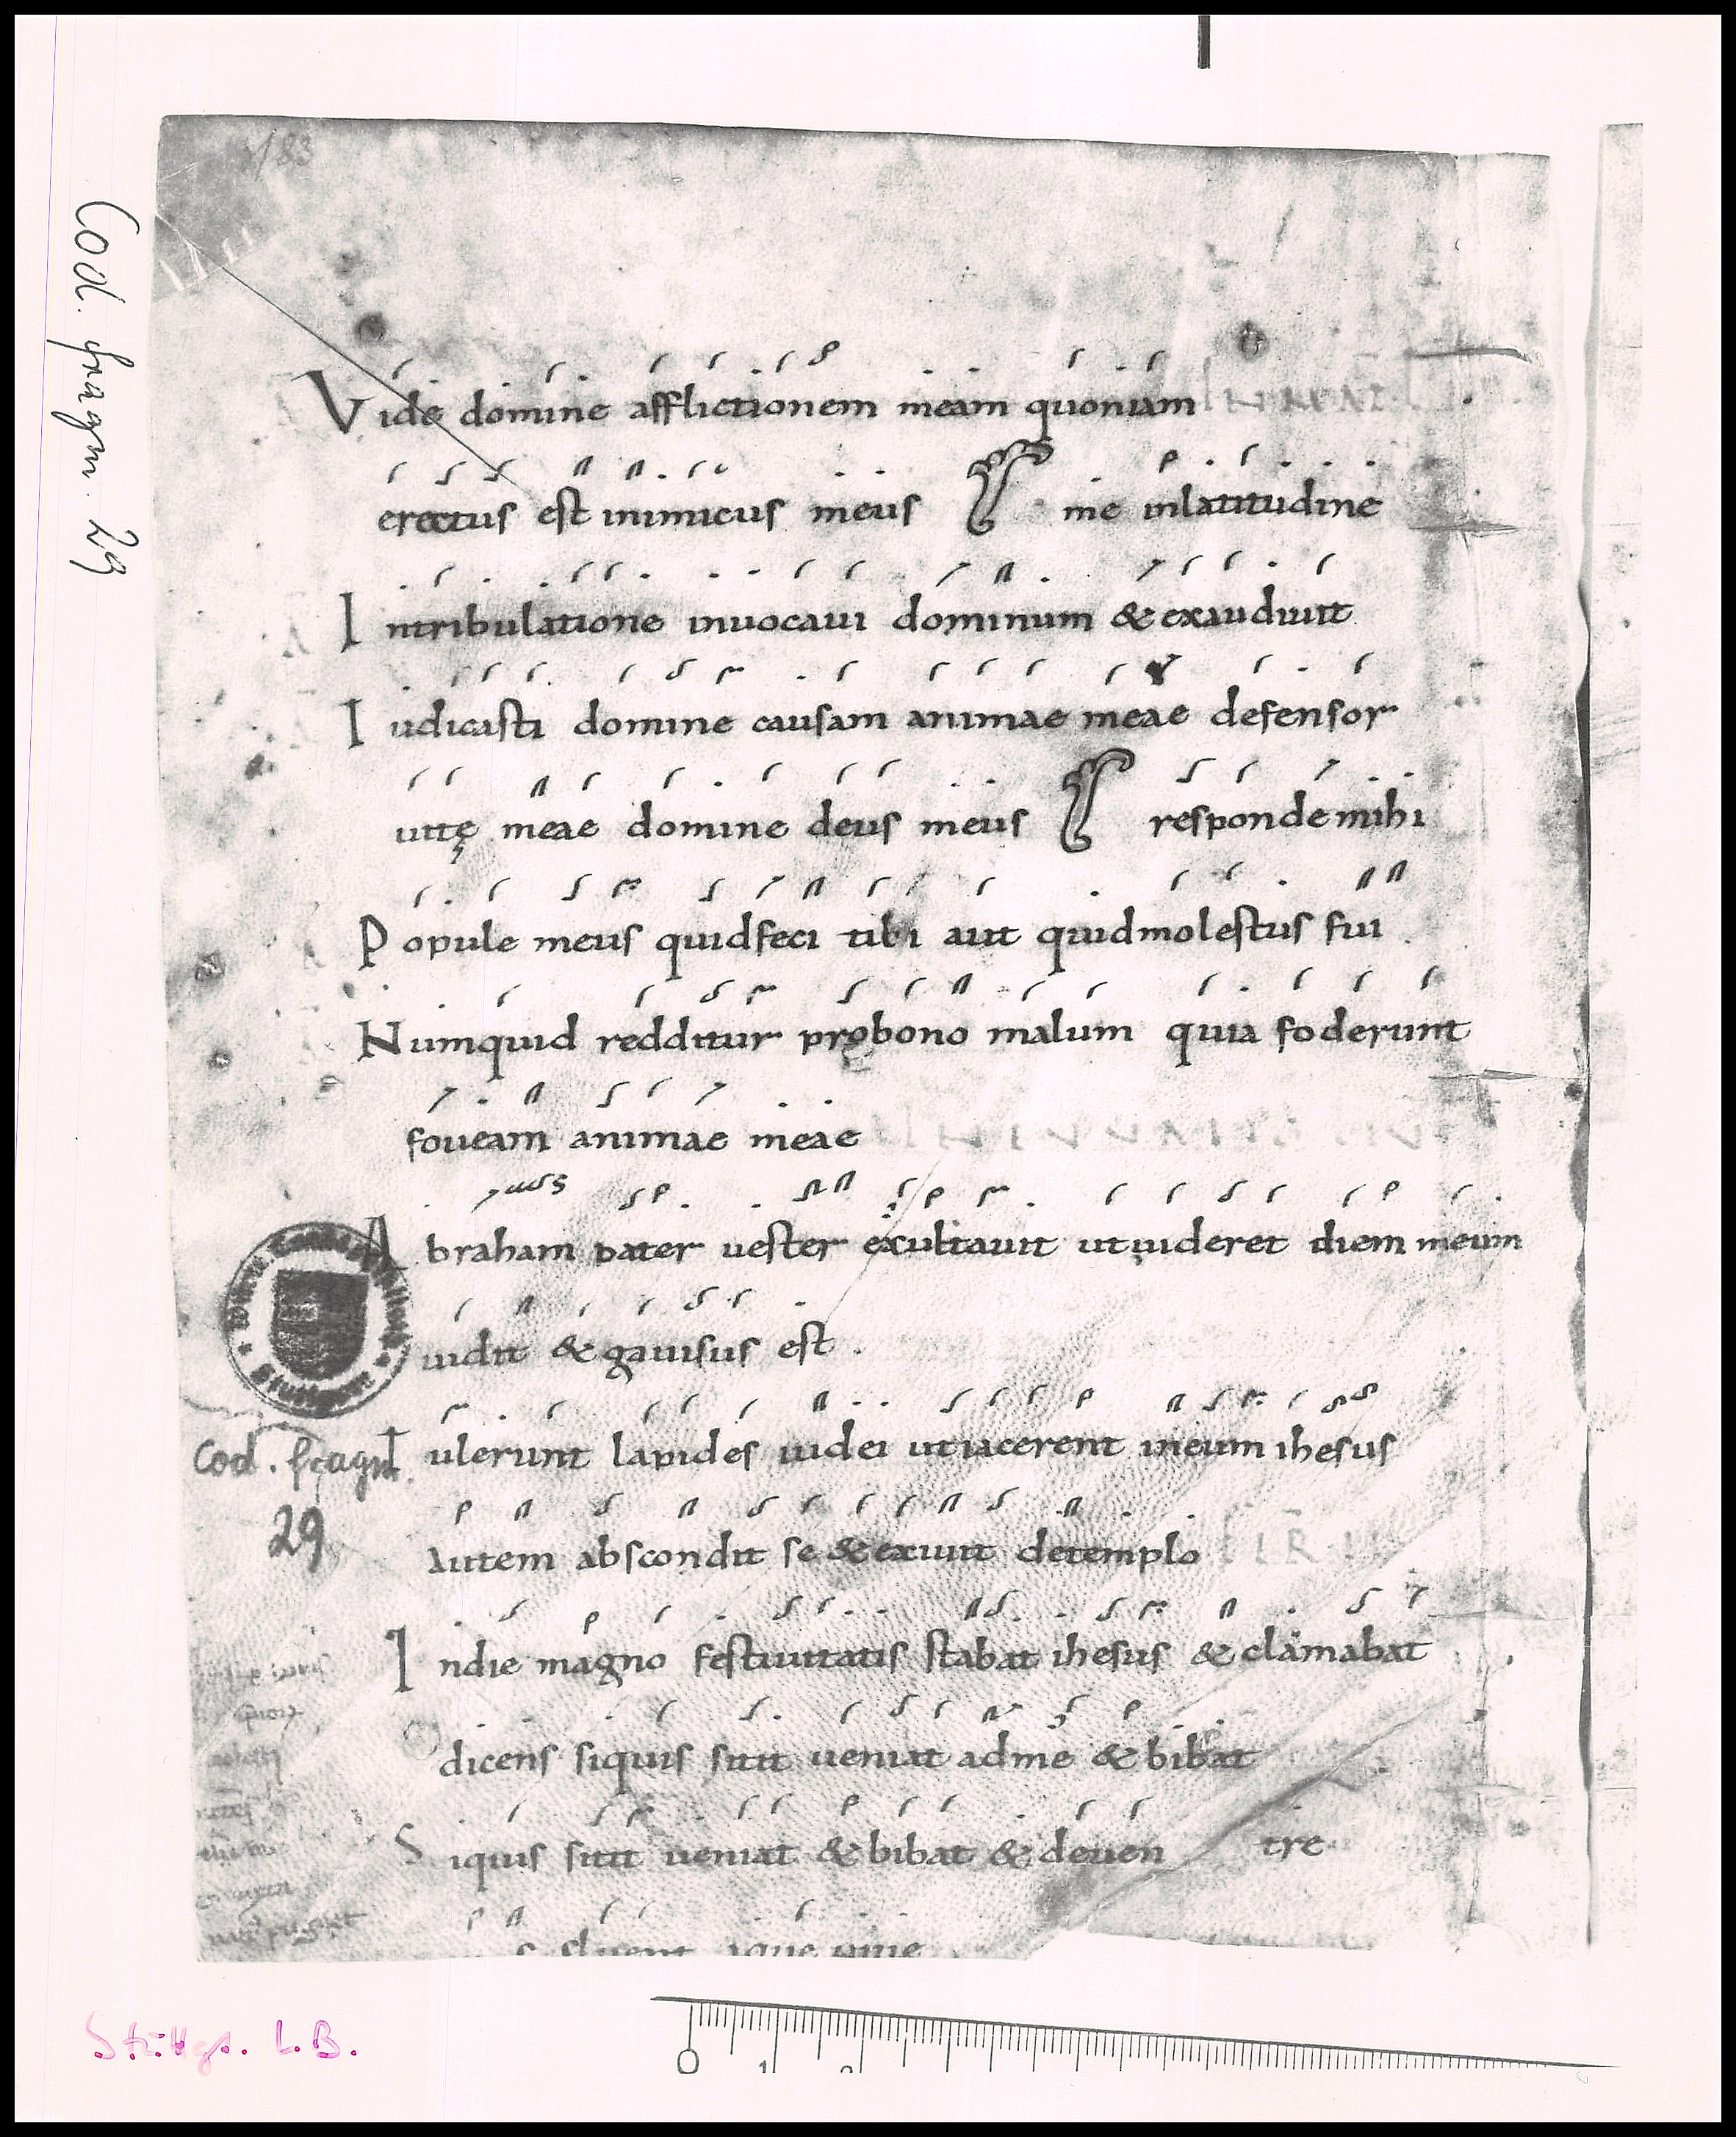 Cod. fragm. 29
183
Vide domine afflictionem meam quoniam
erectus est inimicus meus me inlatitudine
Intribulatione inuocaui dominum & exaudiuit
Iudicasti domine causam animae meae defensor
uitę meae domine deus meus responde mihi
Popule meus quidfeci tibi aut quidmolestus fui
Numquid redditur probono malum quia foderunt
foueam animae meae
Abraham pater uester exultauit utuideret diem meum
uidit & gauisus est.
Tulerunt lapides iudei utiacerent ineum ihesus
Cod. fragm.
29
autem abscondit se & exiuit detemplo
Indie magno festiuitatis stabat ihesus & clamabat
dicens siquis sitit ueniat adme & bibat
Siquis sitit ueniat & bibat & deuen tre
fluent aque uiue
Stuttgt. L.B.
0 1 2